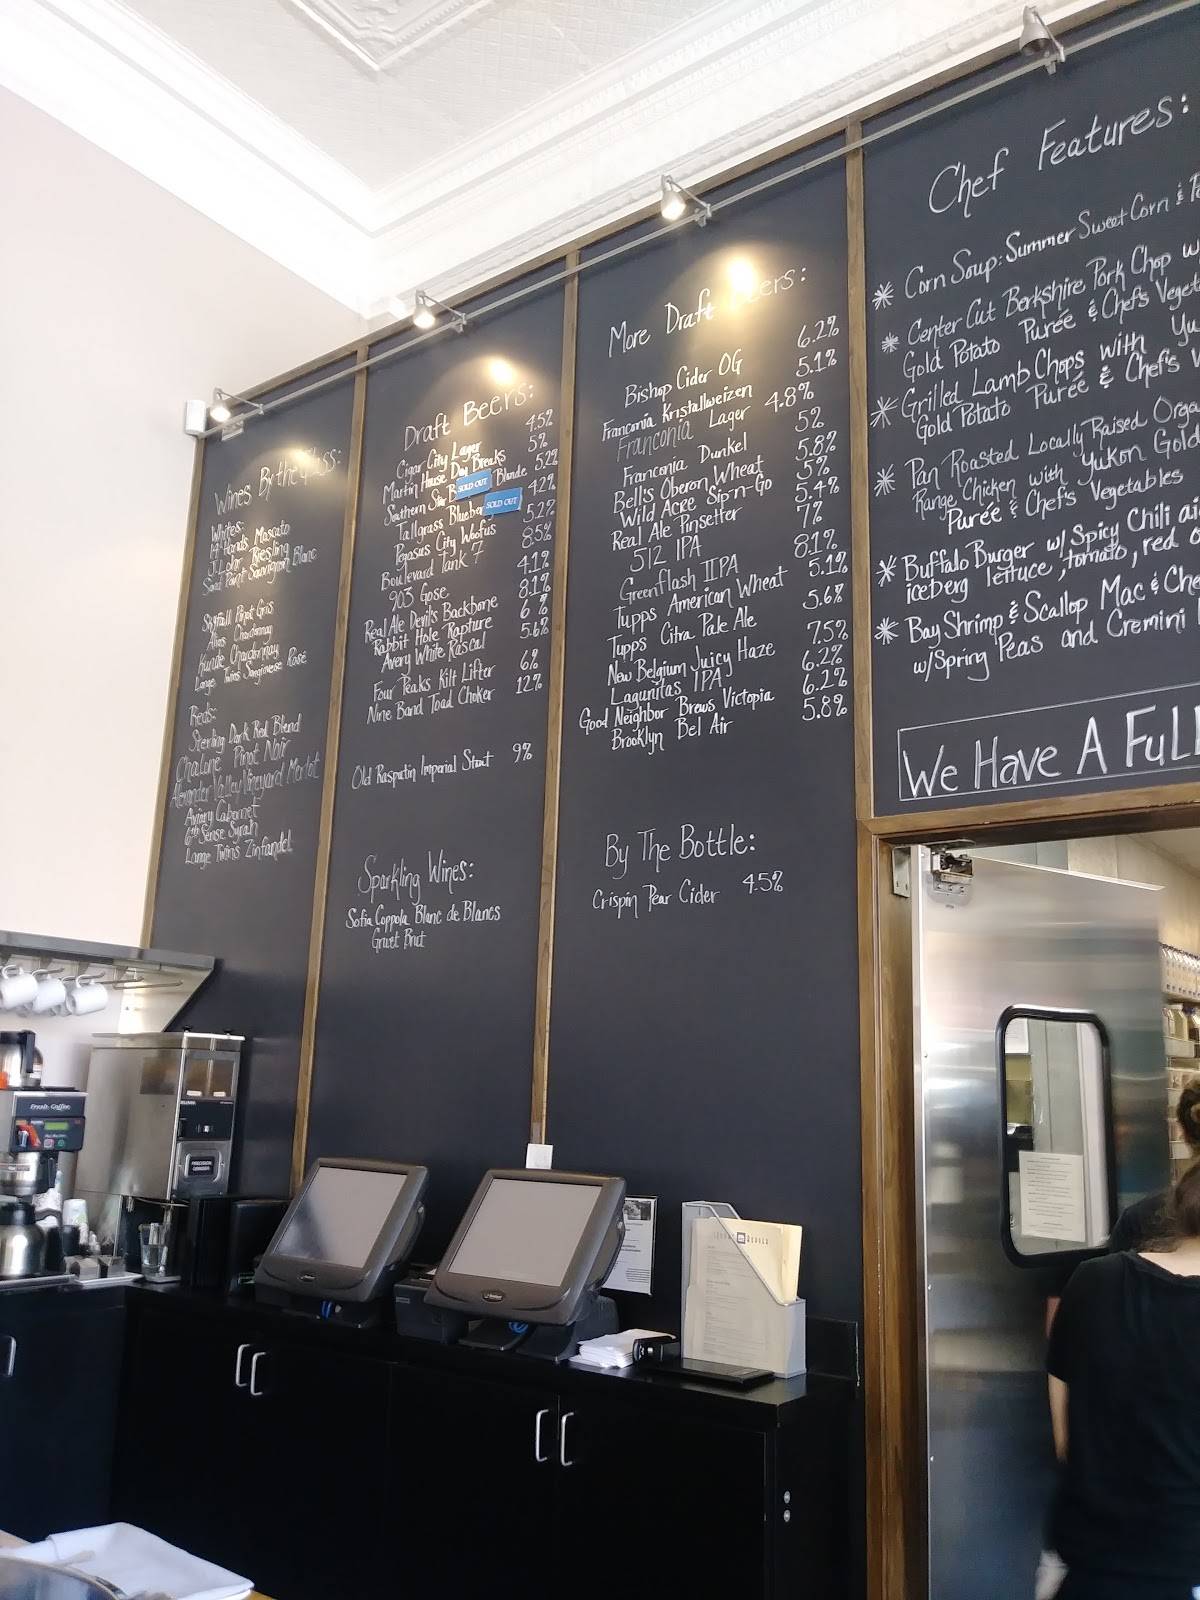 Wines By the Glass:
Whites:
14 Hands Moscato
J. Lohr Riesling
Saint Point Sauvignon Blanc
Skyfall Pinot Gris
Alias Chardonnay
Kunde Chardonnay
Lange Twins Sangiovese Rosé
Reds:
Sterling Dark Red Blend
Chalone Pinot Noir
Alexander Valley Vineyard Merlot
Aviary Cabernet
6th Sense Syrah
Lange Twins Zinfandel
Draft Beers:
Cigar City Lager 4.5%
Martin House Day Breaks 5%
Southern Star Blonde 5.2%
SOLD OUT
Tallgrass Blueber 4.2%
SOLD OUT
Pegasus City Woofus 5.2%
Boulevard Tank 7 8.5%
903 Gose 4.1%
Real Ale Devil's Backbone 8.1%
Rabbit Hole Rapture 6%
Avery White Rascal 5.6%
Four Peaks Kilt Lifter 6%
Nine Band Toad Choker 12%
Old Rasputin Imperial Stout 9%
Sparkling Wines:
Sofia Coppola Blanc de Blancs
Gruet Brut
More Draft Beers:
Bishop Cider OG 6.2%
Franconia Kristallweizen 5.1%
Franconia Lager 4.8%
Franconia Dunkel 5%
Bell's Oberon Wheat 5.8%
Wild Acre Sip-n-Go 5%
Real Ale Pinsetter 5.4%
512 IPA 7%
Greenflash IIPA 8.1%
Tupps American Wheat 5.1%
Tupps Citra Pale Ale 5.6%
New Belgium Juicy Haze 7.5%
Lagunitas IPA 6.2%
Good Neighbor Brews Victopia 6.2%
Brooklyn Bel Air 5.8%
By The Bottle:
Crispin Pear Cider 4.5%
Chef Features:
* Corn Soup: Summer Sweet Corn &
* Center Cut Berkshire Pork Chop w
Gold Potato Purée & Chef's Veget
* Grilled Lamb Chops with Yu
Gold Potato Purée & Chef's V
* Pan Roasted Locally Raised Orga
Range Chicken with Yukon Gold
Purée & Chef's Vegetables
* Buffalo Burger w/ Spicy Chili aio
iceberg lettuce, tomato, red o
* Bay Shrimp & Scallop Mac & Che
w/Spring Peas and Cremini
We Have A Full
Fresh Coffee
PRECISION GRINDER